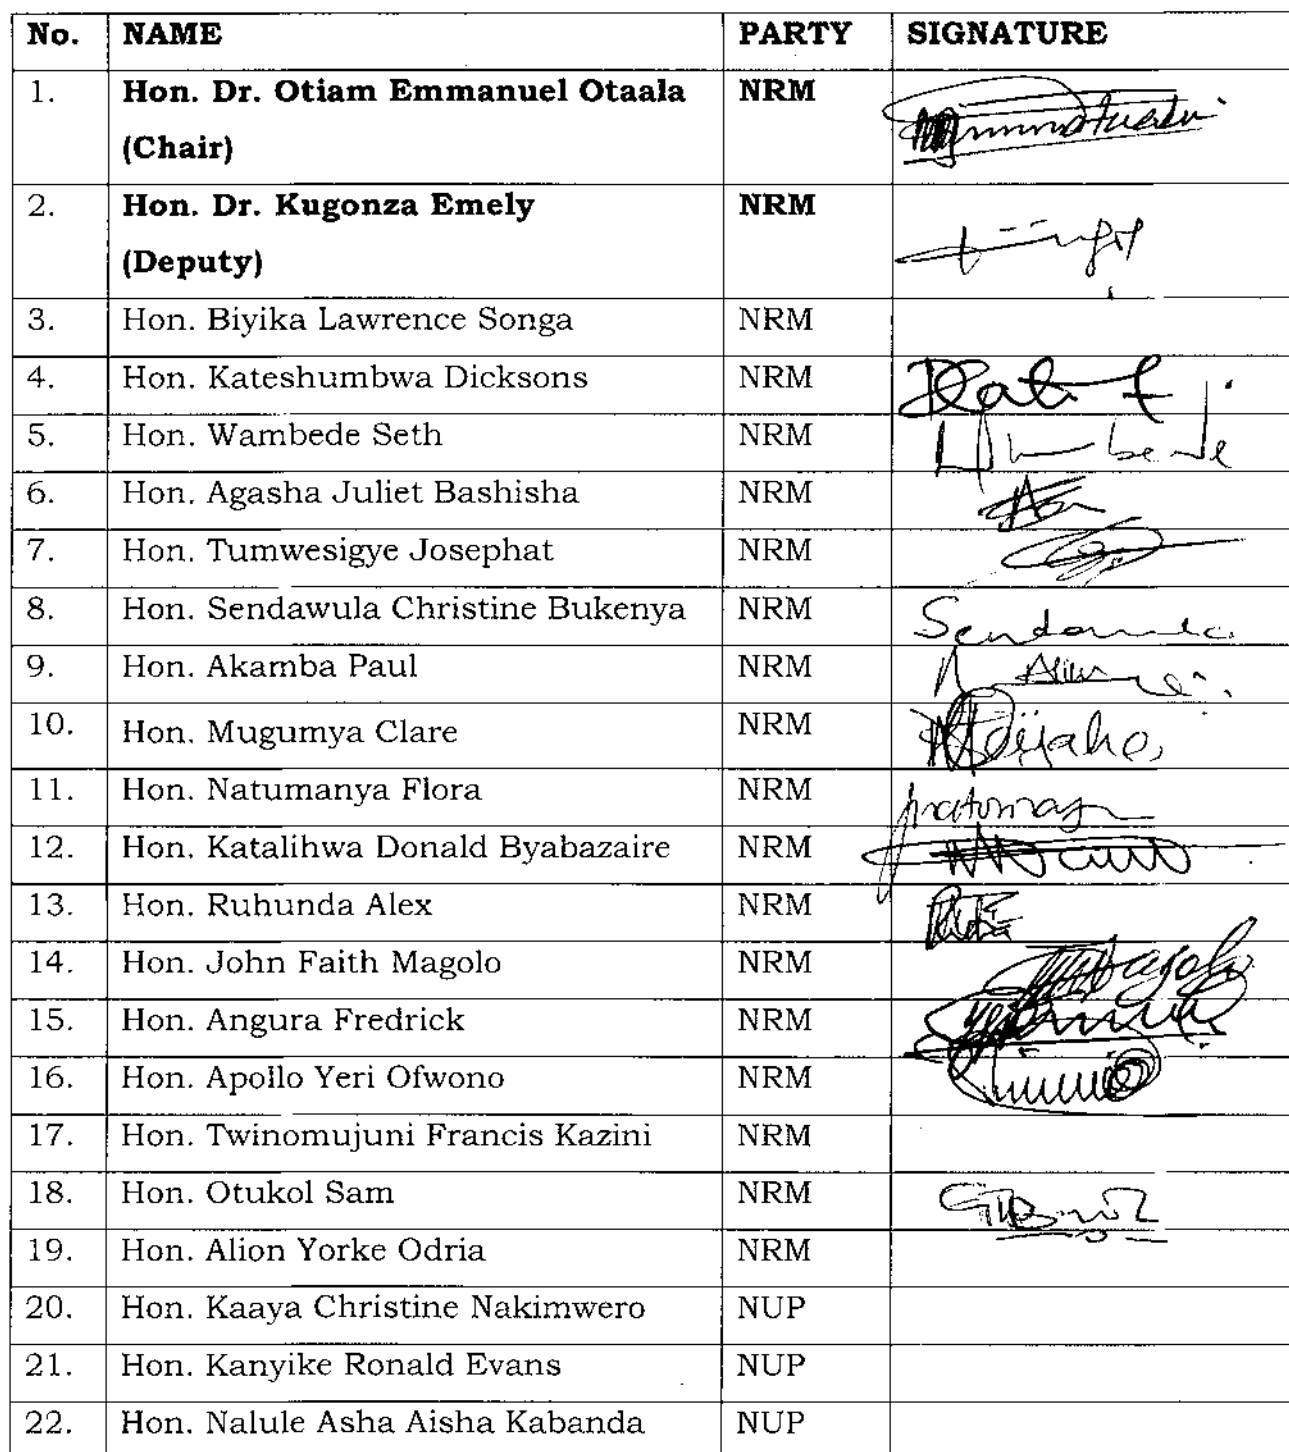 No. NAME PARTY SIGNATURE
1. Hon. Dr. Otiam Emmanuel Otaala NRM
(Chair)
2. Hon. Dr. Kugonza Emely NRM
(Deputy)
3. Hon. Biyika Lawrence Songa NRM
4. Hon. Kateshumbwa Dicksons NRM
5. Hon. Wambede Seth NRM
6. Hon. Agasha Juliet Bashisha NRM
7. Hon. Tumwesigye Josephat NRM
8. Hon. Sendawula Christine Bukenya NRM
9. Hon. Akamba Paul NRM
10. Hon. Mugumya Clare NRM
11. Hon. Natumanya Flora NRM
12. Hon. Katalihwa Donald Byabazaire NRM
13. Hon. Ruhunda Alex NRM
14. Hon. John Faith Magolo NRM
15. Hon. Angura Fredrick NRM
16. Hon. Apollo Yeri Ofwono NRM
17. Hon. Twinomujuni Francis Kazini NRM
18. Hon. Otukol Sam NRM
19. Hon. Alion Yorke Odria NRM
20. Hon. Kaaya Christine Nakimwero NUP
21. Hon. Kanyike Ronald Evans NUP
22. Hon. Nalule Asha Aisha Kabanda NUP